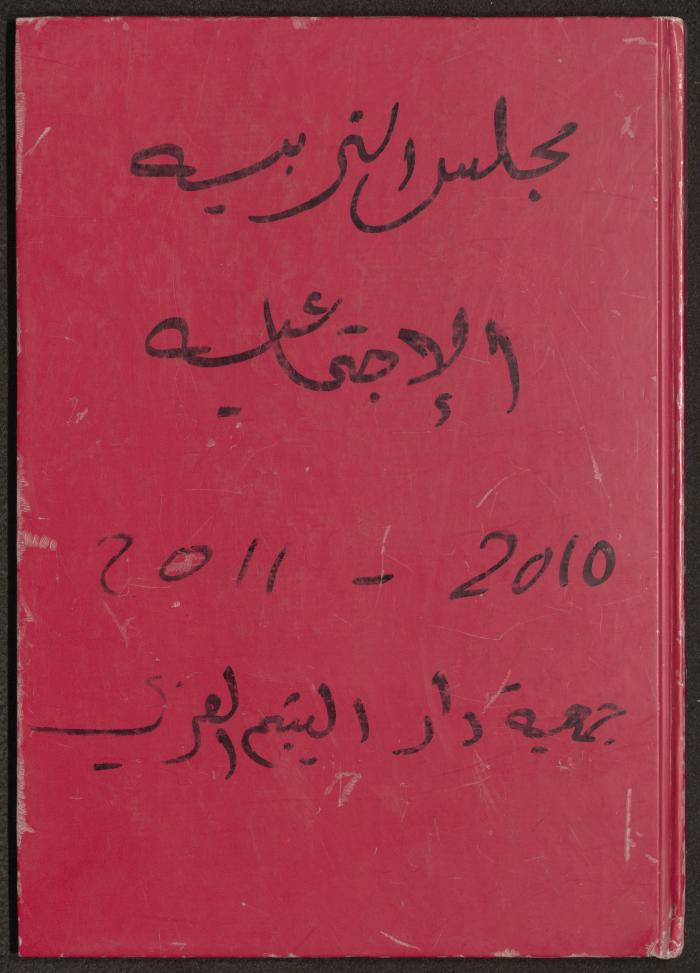 مجلس التربيه
الإجتماعيه
2010 - 2011
جمعية دار اليتيم العربي